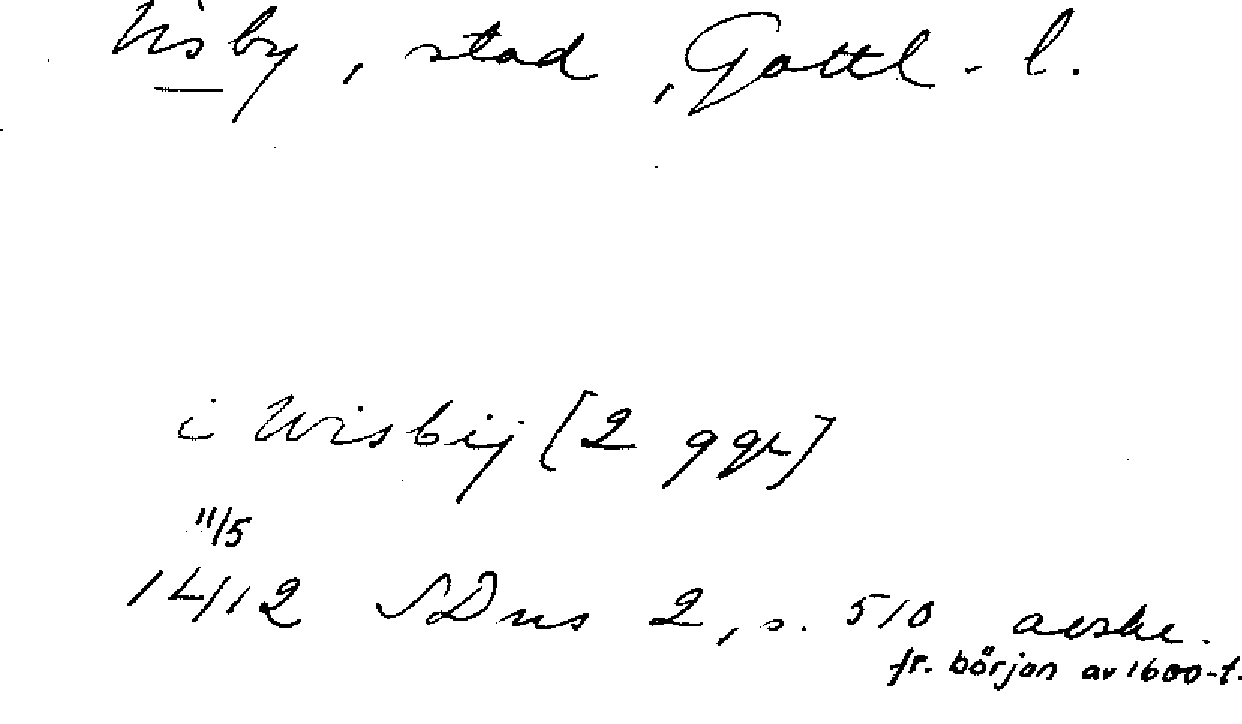 Visby, stad, Gottl. l.
i Wisbij [2 ggr]
11/5
1412 SDns 2, s. 510 avskr.
fr. början av 1600-t.